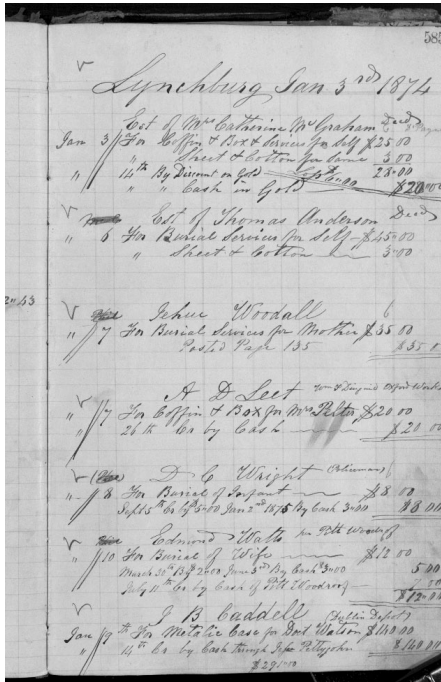 585
Lynchburg Jan 3rd 1874
Est of Mrs Catherine Mc Graham Decd
Jan 3 For Coffin & Box & Services for Self $25 00
" Sheet & Cotton for Same 3 00
" 14th By Discount on Gold 28 00
" " Cash in Gold $28 00
Est of Thomas Anderson Decd
" 6 For Burial Services for Self $45 00
" Sheet & Cotton 3 00
2 53
Woodall
" 7 For Burial Services for Mother $35 00
Posted Page 135 $35 0
A D Leet
" 7 For Coffin & Box for Mrs $20 00
" 26th Cr by Cash $20 00
D C Wright (Policeman)
" 8 For Burial of Infant $8 00
Sept 5th Cr By 5 00 Jan 2nd 1875 By Cash 3 00 $8 00
Edmond Watts
" 10 For Burial of Wife $12 00
March 30th By 2 00 June 3rd By Cash 3 00 5 00
July 11th Cr by Cash of Pett Woodroof
$12 00
J B Caddell (Dublin Depot)
Jan 9th For Metalic Case for Doct Watson $140 00
" 14th Cr by Cash through Pettyjohn $140 00